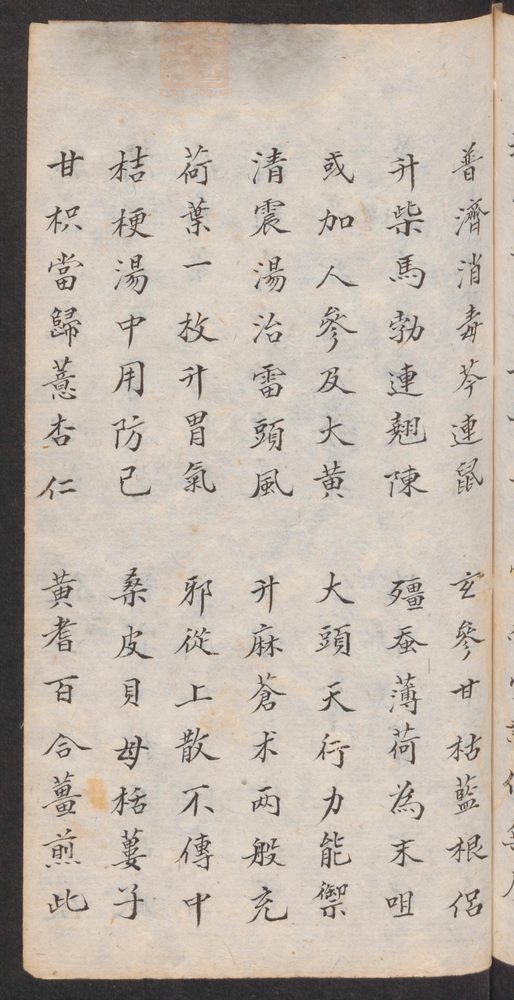 普濟消毒芩連鼠　玄參甘桔藍根侶
升柴馬勃連翹陳　殭蚕薄荷為末咀
或加人參及大黃　大頭天行力能禦
清震湯治雷頭風　升麻蒼术两般充
荷葉一枚升胃氣　邪從上散不傳中
桔梗湯中用防己　桑皮貝母栝蔞子
甘枳當歸薏杏仁　黃耆百合薑煎此